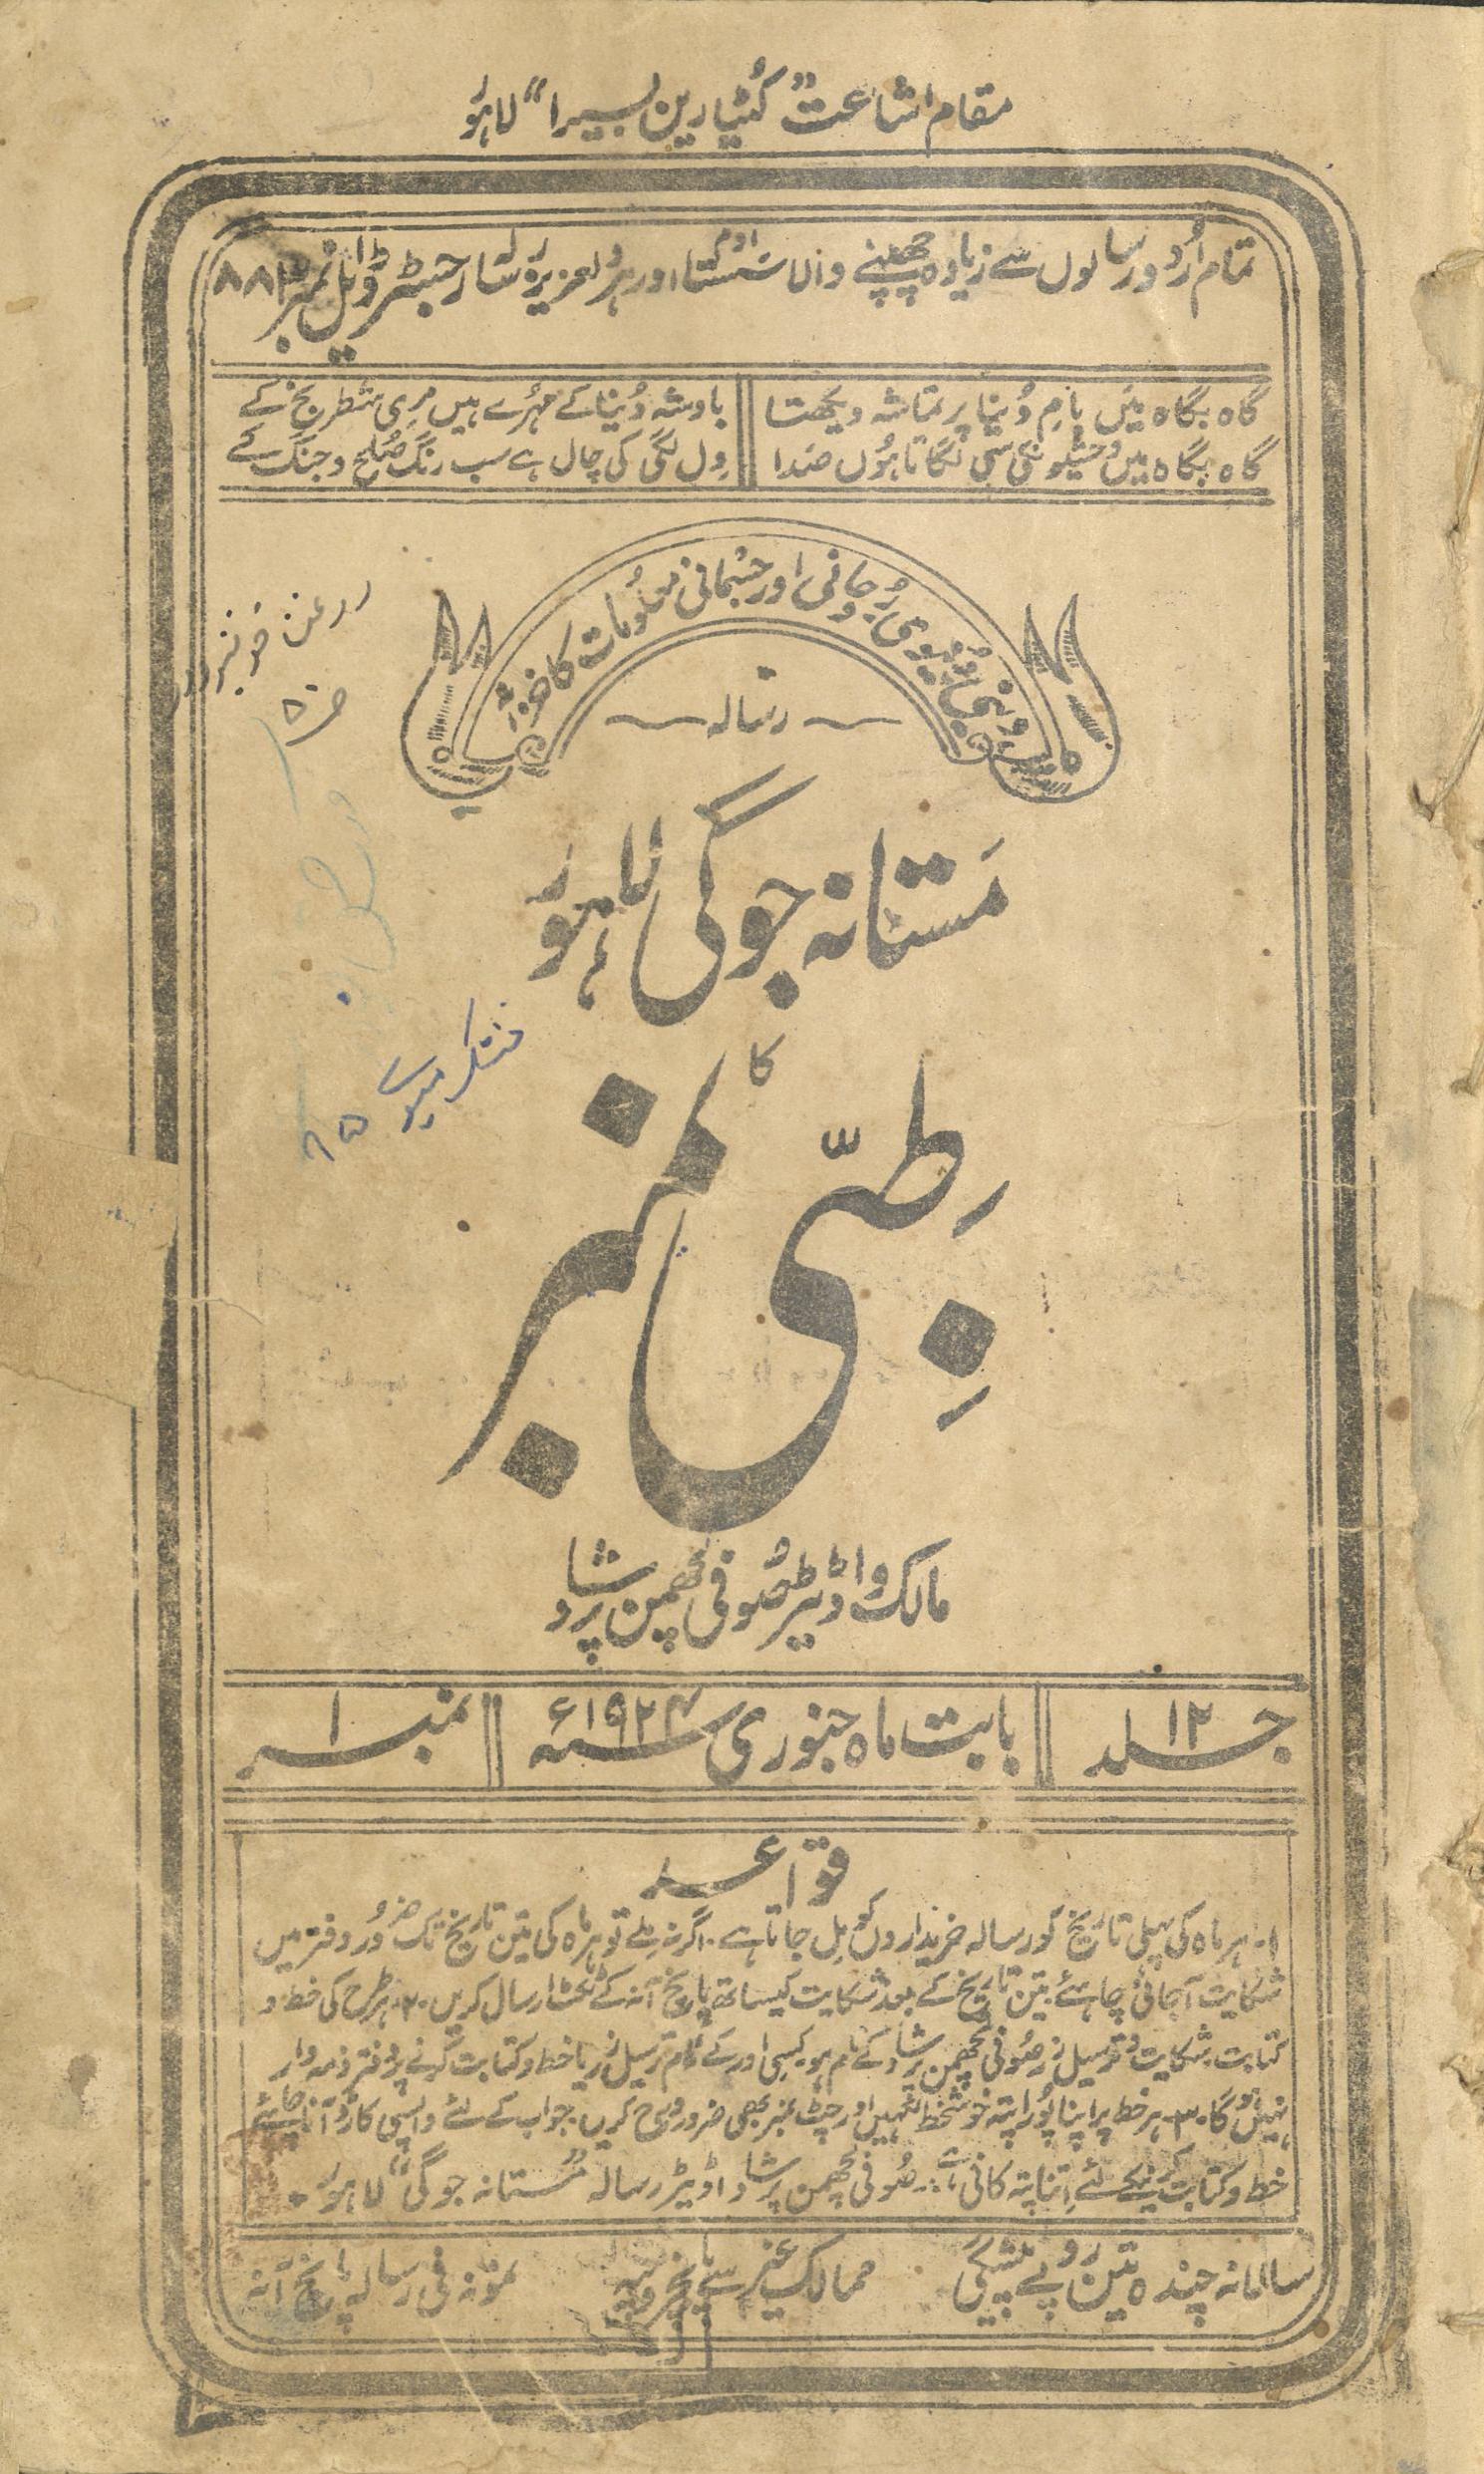 مقام اشاعت "کٹیا رین بسیرا" لاہور
تمام اُردو رسالوں سے زیادہ چھپنے والا سَستا اور ہردلعزیز رسالہ رجسٹرڈ ایل نمبر ۸۸۳
اوم
گاہ بگاہ میں بامِ دُنیا پر تماشہ دیکھتا
بادشہ دُنیا کے مہُرے ہیں مِری شطرنج کے
گاہ بگاہ میں دِل لگاتا ہُوں صَدا
دِل لگی کی چال ہے سب رنگ صُلح و جنگ کے
دینی دُنیوی رُوحانی اور جسمانی معلُومات کا خزینہ
رسالہ
مَستانہ جوگی لاہور
کا
طِبّی نمبر
مالک و اڈیٹر صُوفی لچھمن پرشاد
جلد ۱۲
بابت ماہ جنوری سنہ ۱۹۲۴ء
نمبر ۱
قواعد
۱۔ ہر ماہ کی پہلی تاریخ کو رسالہ خریداروں کو مِل جاتا ہے۔ اگر نہ ملے تو ہر ماہ کی تین تاریخ تک ضرُور دفتر میں
شکایت آجانی چاہئے۔ تین تاریخ کے بعد شکایت کیساتھ پانچ آنہ کے ٹکٹ ارسال کریں۔ ۲۔ ہر طرح کی خط و
کتابت شکایت و ترسیل زر صُوفی لچھمن پرشاد کے نام ہو کسی اور کے نام ترسیل زر یا خط و کتابت کرنے پر دفتر ذمہ وار
نہیں ہوگا۔ ۳۔ ہر خط پر اپنا پُورا پتہ خوشخط لکھیں اور چٹ نمبر بھی ضرور درج کریں۔ جواب کے لئے واپسی کارڈ آنا چاہئے
خط و کتابت کرنے کے لئے اِتنا پتہ کافی ہے:۔ صُوفی لچھمن پرشاد اڈیٹر رسالہ "مَستانہ جوگی" لاہور۔
سالانہ چندہ تین روپے پیشگی
ممالک غیر سے پانچ روپیہ
نمونہ فی رسالہ پانچ آنہ